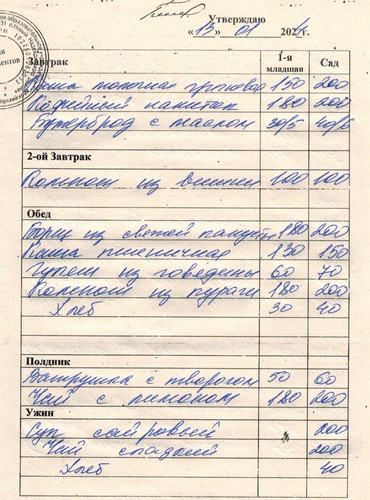 Утверждаю
«13» 01 2024г.
Завтрак 1-я младшая Сад
Каша молочная гречневая 150 200
Кофейный напиток 180 200
Бутерброд с маслом 30/5 40/6
2-ой Завтрак
Компот из вишни 100 100
Обед
Борщ из свежей капусты 180 200
Каша пшеничная 130 150
Гуляш из говядины 60 70
Компот из кураги 180 200
Хлеб 30 40
Полдник
Ватрушка с творогом 50 60
Чай с лимоном 180 200
Ужин
Суп сайровый 200
Чай сладкий 200
Хлеб 40